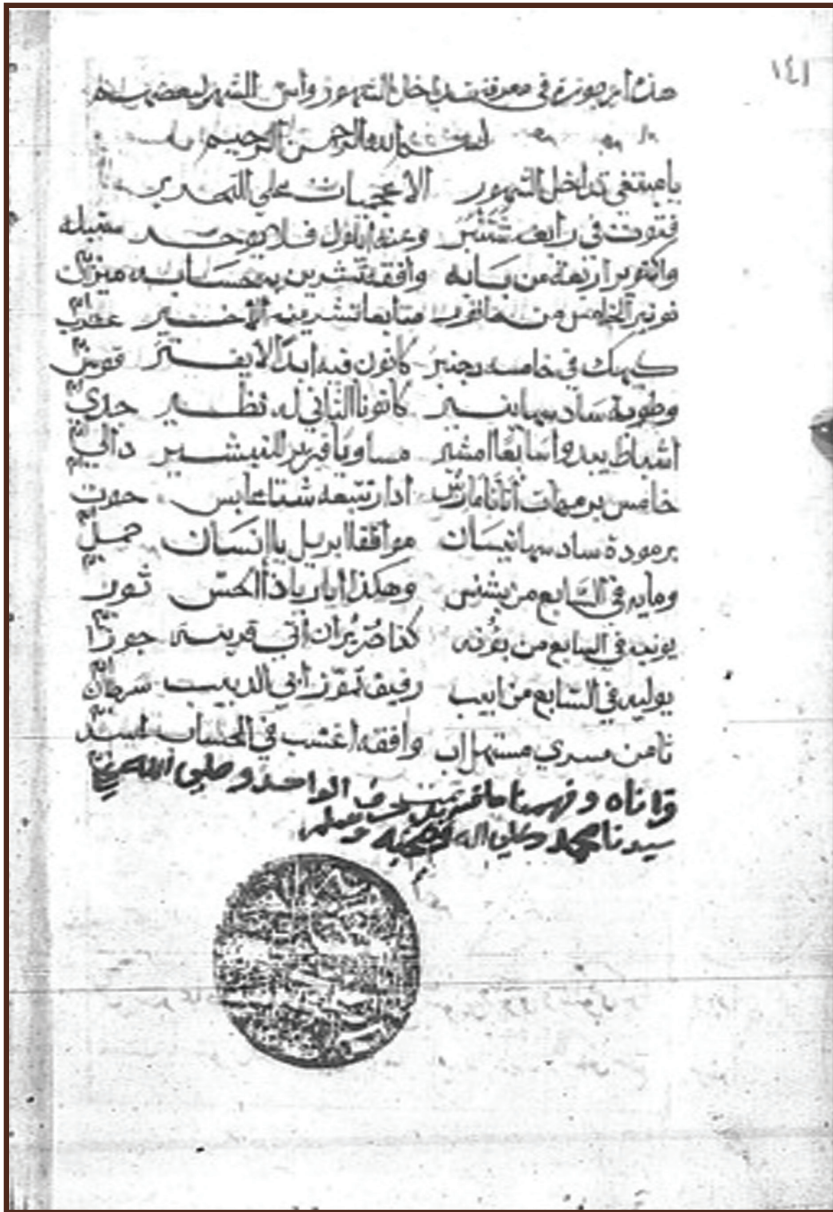 ١٤١
هذه أرجوزة في معرفة تداخل الشهور وأس الشهر لبعضهم
بسم الله الرحمن الرحيم
يا مبتغي تداخل الشهور الأعجميات على التحرير
فتوت في رابعه شتنبر وعنه أيلول فلا يوخر سنبله
واكتوبر أربعة من بابه وافقه تشرين في حسابه ميزان
نونبر الخامس من هاتور متابعا تشرينه الأخير عقرب
كيهك في خامسه دجنبر كانون فيه أبدا لا يفتر قوس
وطوبة سادسها ينير كانونا الثاني له نظير جدي
اشباط يبدو سابعا امشير مساويا فبرير للتبشير دالي
خامس برمهات أتانا مارس ادار تتبعه شتا عابس حوت
برمودة سادسها نيسان موافقا ابريل يا إنسان حمل
ومايه في السابع من بشنس وهكذا أيار يا ذا الحس ثور
يونيه في السابع من بؤنه كذا حزيران أتى قرينه جوزا
يوليه في السابع من ابيب رفيق تموز أخي الدبيب سرطان
ثامن مسري مستهل اب وافقه اغشت في الحساب اسد
سيدنا محمد وعلى اله وصحبه وسلم